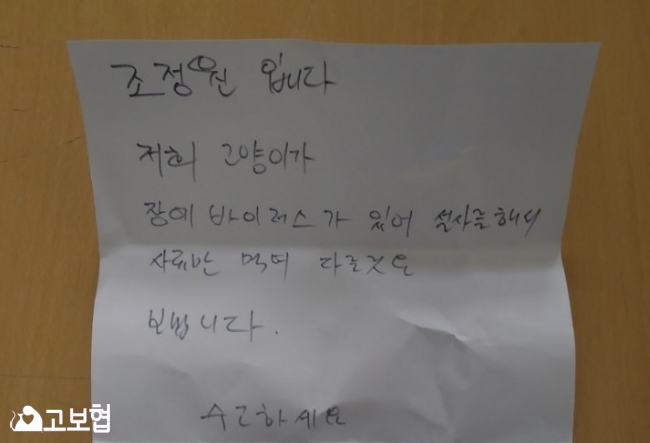 조정원 입니다
저희 고양이가
장에 바이러스가 있어 설사를해서
사료만 먹여 다른것은
보냅니다.
수고하세요
고보협